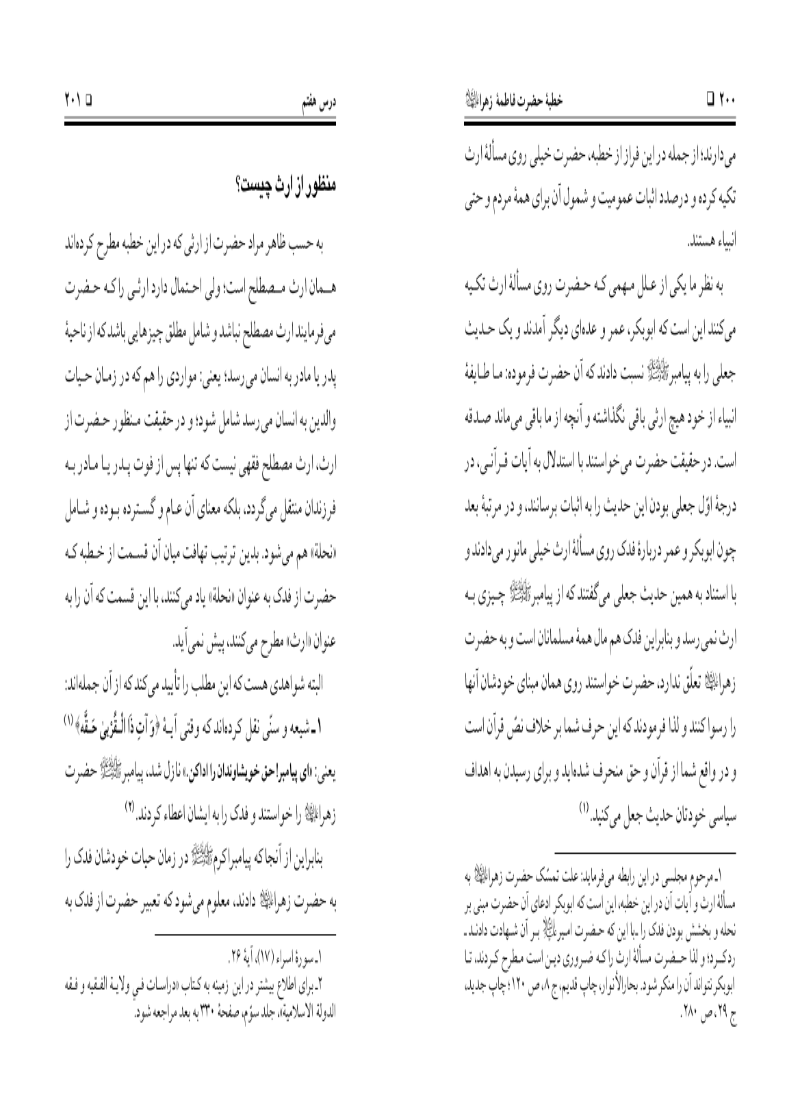 ۲۰۰ ❑ خطبهٔ حضرت فاطمهٔ زهراعلیها‌السلام
می‌دارند؛ از جمله در این فراز از خطبه، حضرت خیلی روی مسألهٔ ارث
تکیه کرده و درصدد اثبات عمومیت و شمول آن برای همهٔ مردم و حتی
انبیاء هستند.
به نظر ما یکی از علل مهمی که حضرت روی مسألهٔ ارث تکیه
می‌کنند این است که ابوبکر، عمر و عده‌ای دیگر آمدند و یک حدیث
جعلی را به پیامبرﷺ نسبت دادند که آن حضرت فرموده: ما طایفهٔ
انبیاء از خود هیچ ارثی باقی نگذاشته و آنچه از ما باقی می‌ماند صدقه
است. در حقیقت حضرت می‌خواستند با استدلال به آیات قرآنی، در
درجهٔ اوّل جعلی بودن این حدیث را به اثبات برسانند، و در مرتبهٔ بعد
چون ابوبکر و عمر دربارهٔ فدک روی مسألهٔ ارث خیلی مانور می‌دادند و
با استناد به همین حدیث جعلی می‌گفتند که از پیامبرﷺ چیزی به
ارث نمی‌رسد و بنابراین فدک هم مال همهٔ مسلمانان است و به حضرت
زهراعلیها‌السلام تعلّق ندارد، حضرت خواستند روی همان مبنای خودشان آنها
را رسوا کنند و لذا فرمودند که این حرف شما بر خلاف نصّ قرآن است
و در واقع شما از قرآن و حق منحرف شده‌اید و برای رسیدن به اهداف
سیاسی خودتان حدیث جعل می‌کنید.(۱)
۱ـ مرحوم مجلسی در این رابطه می‌فرماید: علت تمسّک حضرت زهراعلیها‌السلام به
مسألهٔ ارث و آیات آن در این خطبه، این است که ابوبکر ادعای آن حضرت مبنی بر
نحله و بخشش بودن فدک را ـ با این که حضرت امیرعلیه‌السلام بر آن شهادت دادند ـ
رد کرد؛ و لذا حضرت مسألهٔ ارث را که ضروری دین است مطرح کردند، تا
ابوبکر نتواند آن را منکر شود. بحارالأنوار، چاپ قدیم، ج ۸، ص ۱۲۰؛ چاپ جدید،
ج ۲۹، ص ۲۸۰.
درس هفتم ❑ ۲۰۱
منظور از ارث چیست؟
به حسب ظاهر مراد حضرت از ارثی که در این خطبه مطرح کرده‌اند
همان ارث مصطلح است؛ ولی احتمال دارد ارثی را که حضرت
می‌فرمایند ارث مصطلح نباشد و شامل مطلق چیزهایی باشد که از ناحیهٔ
پدر یا مادر به انسان می‌رسد؛ یعنی: مواردی را هم که در زمان حیات
والدین به انسان می‌رسد شامل شود؛ و در حقیقت منظور حضرت از
ارث، ارث مصطلح فقهی نیست که تنها پس از فوت پدر یا مادر به
فرزندان منتقل می‌گردد، بلکه معنای آن عام و گسترده بوده و شامل
«نحلة» هم می‌شود. بدین ترتیب تهافت میان آن قسمت از خطبه که
حضرت از فدک به عنوان «نحلة» یاد می‌کنند، با این قسمت که آن را به
عنوان «ارث» مطرح می‌کنند، پیش نمی‌آید.
البته شواهدی هست که این مطلب را تأیید می‌کند که از آن جمله‌اند:
۱ـ شیعه و سنّی نقل کرده‌اند که وقتی آیهٔ ﴿وَ آتِ ذَا الْقُرْبیٰ حَقَّه﴾(۱)
یعنی: «ای پیامبر! حق خویشاوندان را اداکن.» نازل شد، پیامبرﷺ حضرت
زهراعلیها‌السلام را خواستند و فدک را به ایشان اعطاء کردند.(۲)
بنابراین از آنجا که پیامبراکرمﷺ در زمان حیات خودشان فدک را
به حضرت زهراعلیها‌السلام دادند، معلوم می‌شود که تعبیر حضرت از فدک به
۱ـ سورهٔ اسراء (۱۷)، آیهٔ ۲۶.
۲ـ برای اطلاع بیشتر در این زمینه به کتاب «دراسات في ولایة الفقیه و فقه
الدولة الاسلامیة»، جلد سوّم، صفحهٔ ۳۳۰ به بعد مراجعه شود.